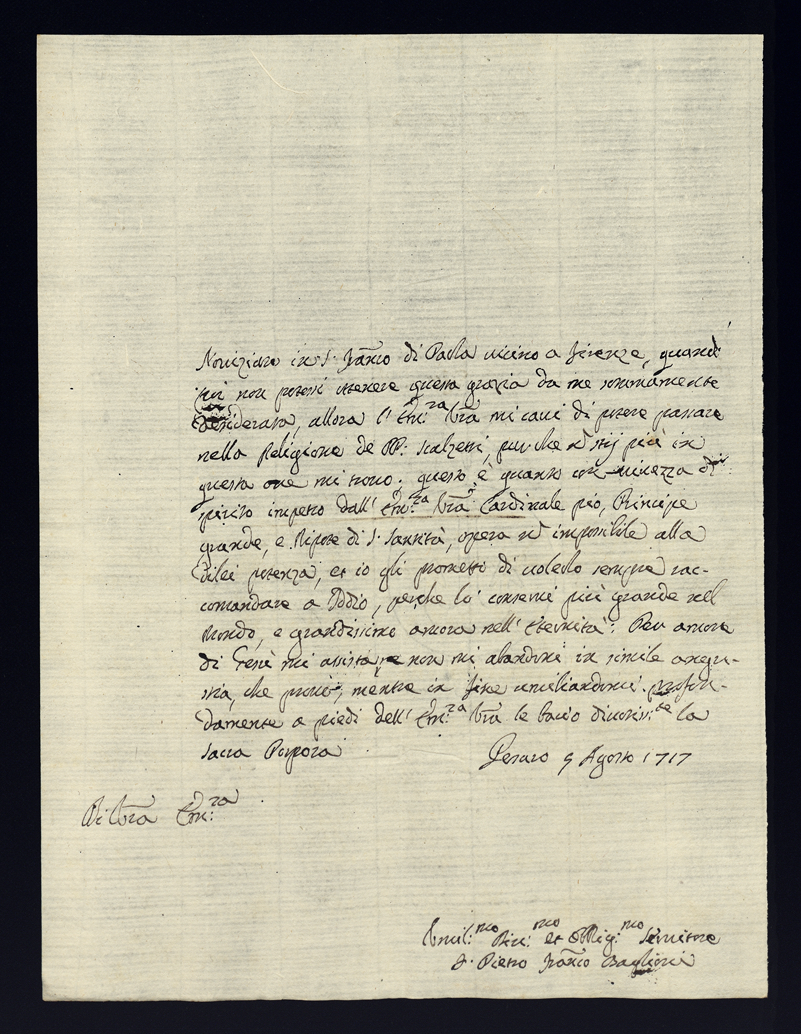 Noviziare in S. Franco di Paola vicino a Firenze, quando
poi non potessi ottenere questa grazia da me sommamente
desiderata, allora l'Em:za Vra mi cavi di potere passare
nella Religione de PP: Scalzetti, purche nō stij più in
questa ove mi trovo; questo è quanto con vivezza di
spirito impetro dall'Em:za Vra Cardinale pio, Principe
grande, e Nipote di S. Santità, opera nō impossibile alla
dilei potenza, et io gli prometto di volerlo sempre rac-
comandare a Iddio, perche lo conservi più grande nel
Mondo, e grandissimo ancora nell'Eternità: Per amore
di Giesù mi assista, e non mi abandoni in simile angu-
stia, che provo, mentre in fine umiliandomi profon-
damente a piedi dell'Em:za Vra le bacio divotis:te la
Sacra Porpora
Pesaro 9 Agosto 1717
Di Vra Em:za
Umil:mo Div:mo et Obblig:mo Servitore
F. Pietro Franco Baglioni